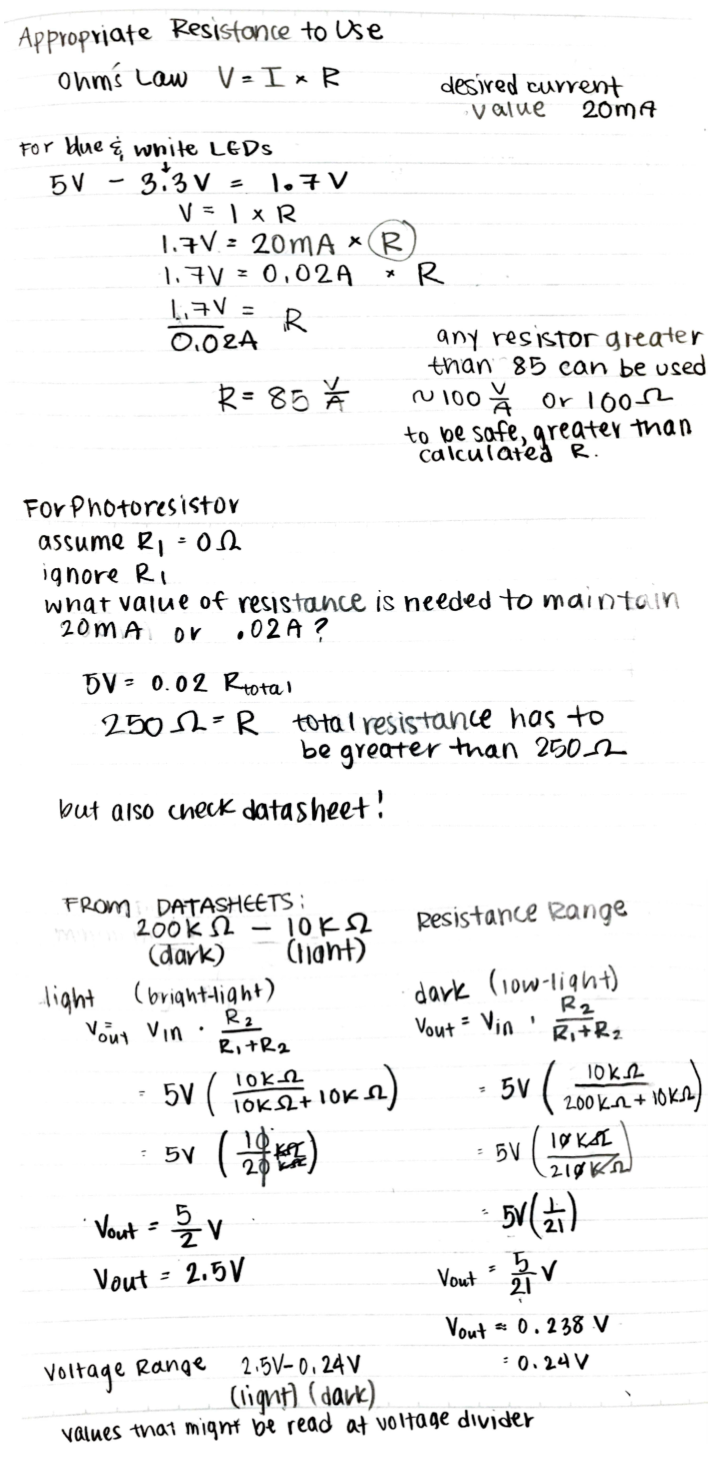 Appropriate Resistance to Use
Ohm's Law V = I × R
desired current
value 20mA
For blue & white LEDs
5V - 3.3V = 1.7V
V = I × R
1.7V = 20mA × R
1.7V = 0.02A × R
1.7V/0.02A = R
R = 85 V/A
any resistor greater
than 85 can be used
~100 V/A or 100Ω
to be safe, greater than
calculated R.
For Photoresistor
assume R1 = 0Ω
ignore R1
what value of resistance is needed to maintain
20mA or .02A?
5V = 0.02 Rtotal
250Ω = R total resistance has to
be greater than 250Ω
but also check datasheet!
FROM DATASHEETS:
200KΩ - 10KΩ Resistance Range
(dark) (light)
light (bright-light)
Vout = Vin · R2/(R1+R2)
= 5V (10KΩ/(10KΩ + 10KΩ))
= 5V (10 KΩ/20 KΩ)
Vout = 5/2 V
Vout = 2.5V
dark (low-light)
Vout = Vin · R2/(R1+R2)
= 5V (10KΩ/(200KΩ + 10KΩ))
= 5V (10KΩ/210KΩ)
= 5V (1/21)
Vout = 5/21 V
Vout ≈ 0.238 V
= 0.24V
Voltage Range 2.5V-0.24V
(light) (dark)
values that might be read at voltage divider